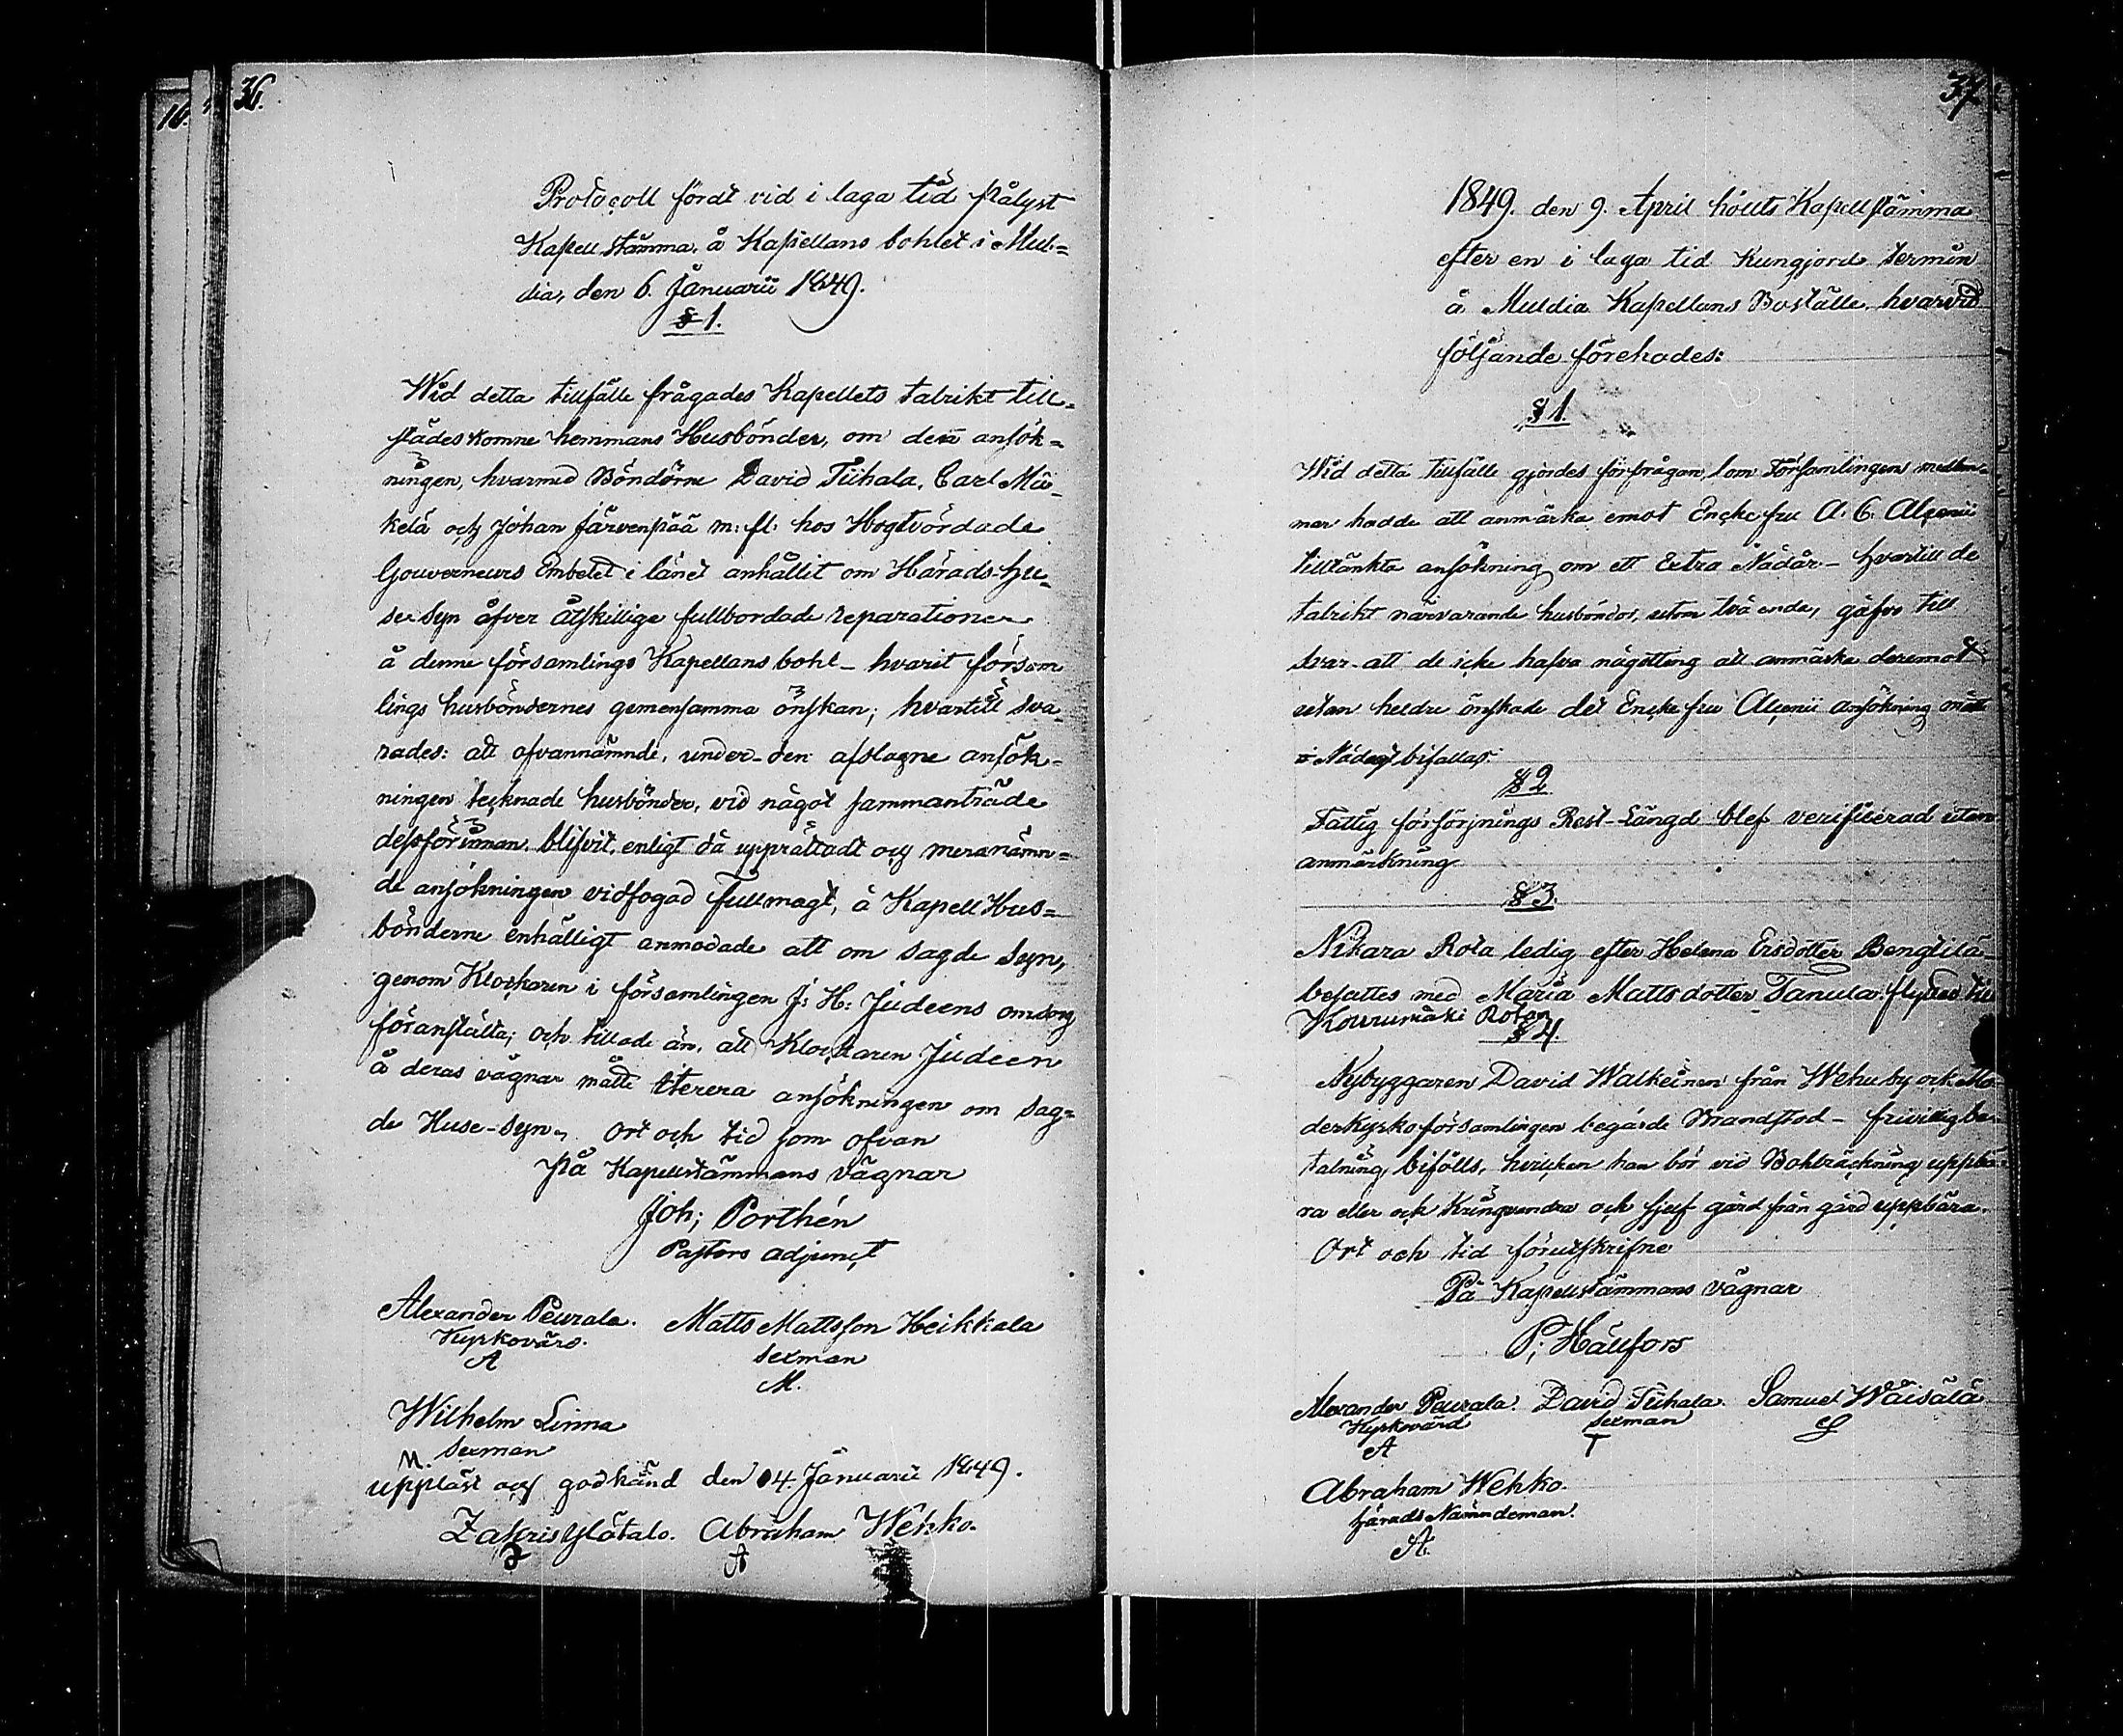 16.
36.
Protocoll fördt vid i laga tid pålyst
Kapell stämma, å Kapellans bohlet i Mul-
dia, den 6. Januarii 1849.
§ 1.
Wid detta tillfälle frågades Kapellets talrikt till-
städes komne hemmans Husbönder, om den ansök-
ningen, hvarmed Bönderne David Tiihala, Carl Mä-
kelä och Johan Järvenpää m: fl: hos Högtvördade
Gouverneurs Embetet i länet anhållit om Härads-hu-
se syn öfver åtskillige fullbordade reparationer
å denne församlings Kapellans bohl - hvarit försam
lings husböndernes gemensamma önskan; hvartill sva-
rades: att ofvannämnde, under den afslagne ansök-
ningen tecknade husbönder, vid något sammanträde
dessförinnan, blifvit, enligt då upprättadt och meranämn-
de ansökningen vidfogad Fullmagt, å Kapell Hus-
bönderne enhälligt anmodade att om sagde syn,
genom Klockaren i församlingen J: H: Judeens omsorg
föranstalta; och tillade än, att Klockaren Judeen
å deras vägnar måtte iterera ansökningen om sag-
de Huse-syn. Ort och tid som ofvan
På Kapellstämmans vägnar
Joh; Porthén
Pastors adjunct
Alexander Peurala. Matts Mattsson Heikkala
Kyrkovärd. sexman
A M.
Wilhelm Linna
sexman
M.
uppläst och godkänd den 14. Januarii 1849.
Zakris Ylätalo. Abraham Wehko.
Z A
37
1849. den 9. April hölts Kapellstämma
efter en i laga tid Kungjord termin
å Muldia Kapellans Boställe, hvarvid
följande förehades:
§ 1.
Wid detta tillfälle gjordes förfrågan, om Församlingens medlem-
mar hade att anmärka emot Enckefru A. C. Alcenii
tilltänkta ansökning om ett Extra Nådår - hvartill de
talrikt närvarande husbönder, utom två enda, gåfvo till
svar att de icke hafva någotting att anmärka deremot
utan heldre önskade det Enckefru Alcenii ansökning måtte
i Nåder bifallas.
§ 2
Fattig försörjnings Rest-Längd blef verificerad utan
anmärkning
§ 3.
Nikara Rota ledig efter Helena Ersdotter Bengtilä
besattes med Maria Mattsdotter Tanula flyttad till
Kourumäki Rotan
§ 4.
Nybyggaren David Walkeinen från Wehu by och Mo-
derkyrkoförsamlingen begärde Brandstod - frivillig be-
talning bifölls, hvilcken han bör vid Bohlräckning uppbä-
ra eller och Kringvandra och sjelf gård från gård uppbära.
Ort och tid förutskrifne
På Kapellstämmans vägnar
P; Hällfors
Alexander Peurala. David Tiihala. Samuel Wäisälä
Kyrkovärd sexman S
A T
Abraham Wehko.
härads Nämndeman.
A.